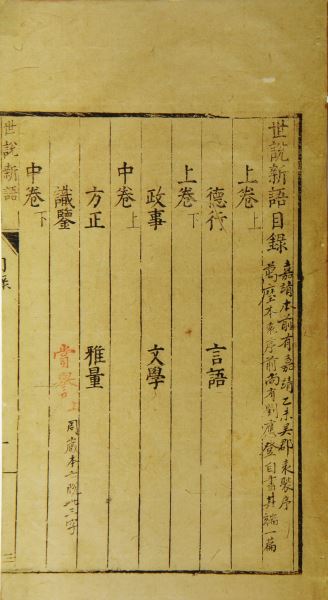 世說新語目錄
嘉靖本前有嘉靖乙未吳郡袁褧序
萬歷本袁序前尚有劉應登自書其端一篇
上卷上
德行 言語
上卷下
政事 文學
中卷上
方正 雅量
識鑒 賞譽上
周藏本亦脫此三字
中卷下
世說新語
目錄